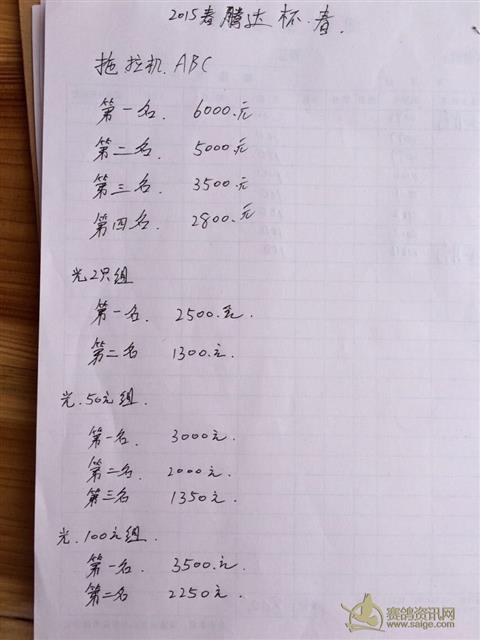 2015春腾达杯.春.
拖拉机.ABC
第一名. 6000.元
第二名. 5000.元
第三名. 3500元
第四名. 2800.元
光2只组
第一名. 2500.元.
第二名 1300.元.
光.50元组.
第一名. 3000元.
第二名. 2000元.
第三名 1350元.
光.100元组.
第一名. 3500.元.
第二名 2250元.
赛鸽资讯网
www.saige.com